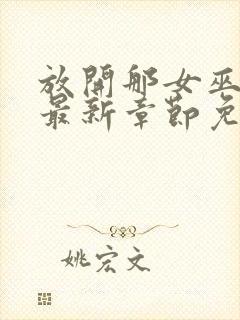 放開那女巫
最新章節免
姚宏文